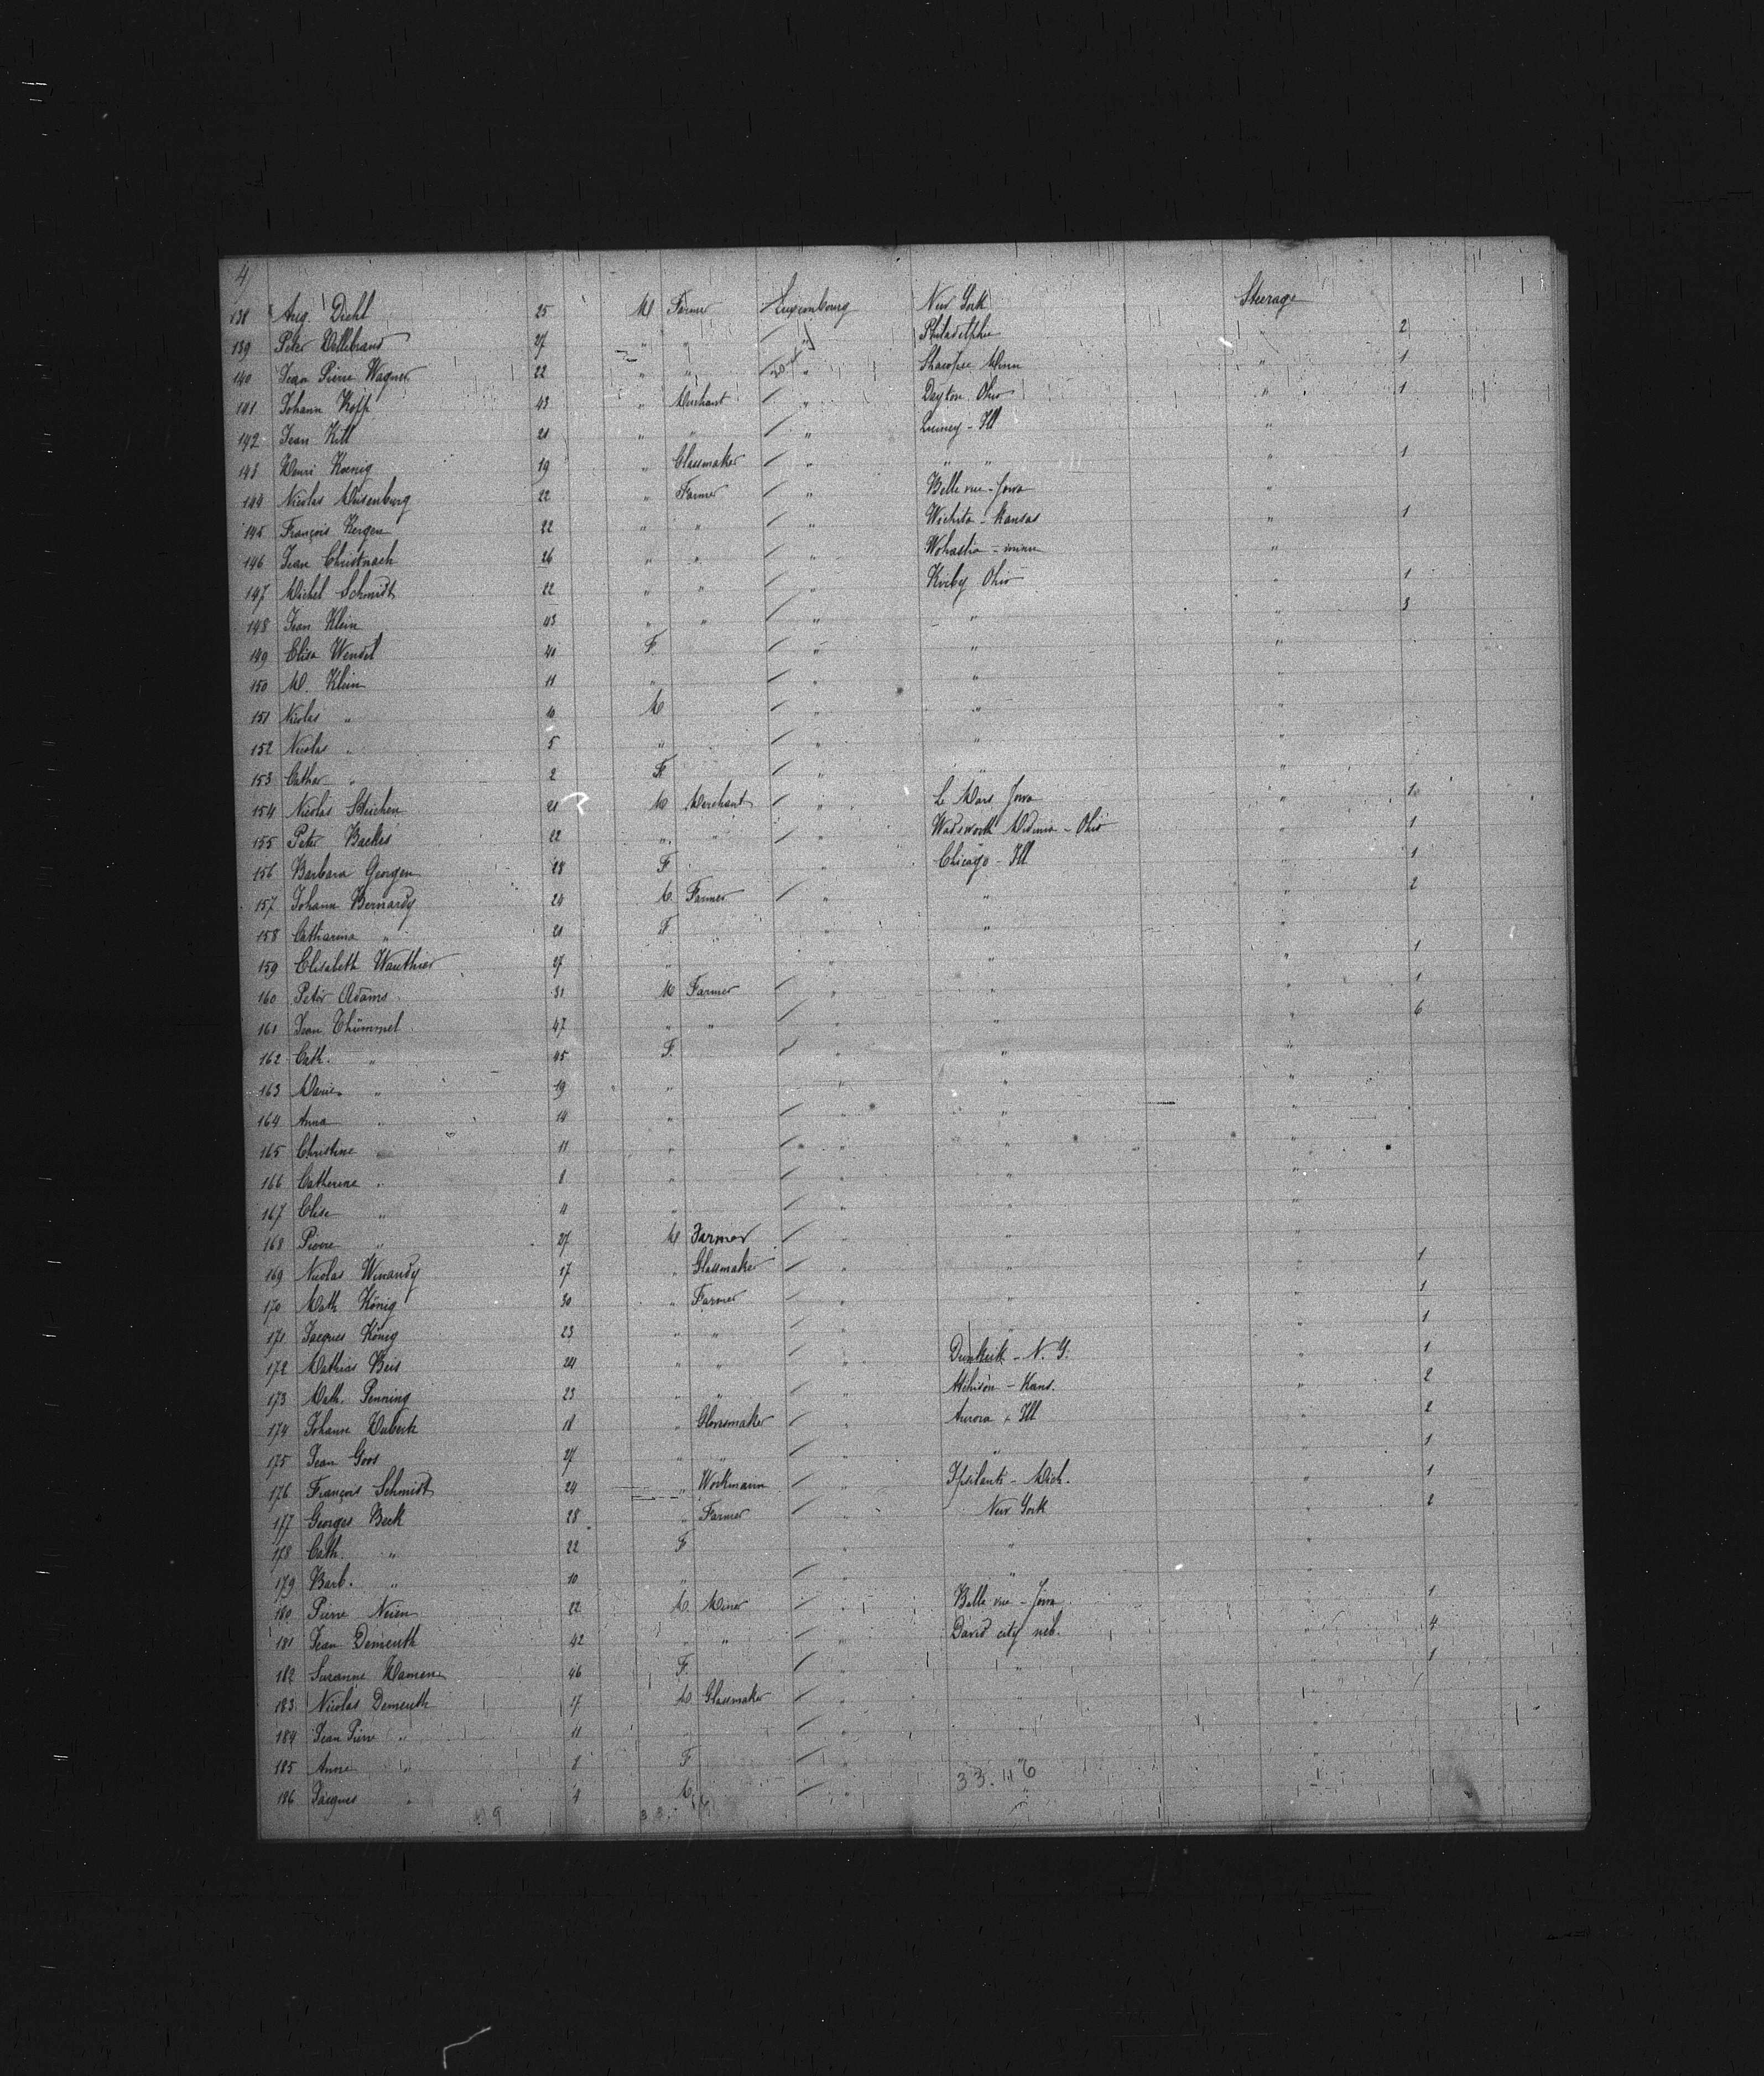 4
138 Aug. Diehl 25 M Farmer Luxembourg New York Steerage
139 Peter Dellebrand 27 " " " Philadelphie " 2
140 Jean Pierre Wagner 22 " " " Shacopee Minn " 1
141 Johann Kopp 43 " Merchant " Dayton Ohio " 1
142 Jean Kill 21 " " " Quincy - Ill "
143 Henri Koenig 19 " Glassmaker " " " " 1
144 Nicolas Meisenburg 22 " Farmer " Belle vue - Iowa "
145 François Kergen 22 " " " Wichita - Kansas " 1
146 Jean Christnach 26 " " " - minn "
147 Michel Schmidt 22 " " " Kirby Ohio " 1
148 Jean Klein 43 " " " " " 3
149 Elisa Wendel 41 F " " "
150 M. Klein 11 " " " "
151 Nicolas " 10 M " " "
152 Nicolas " 5 " " " "
153 Cather " 2 F " " "
154 Nicolas Steichen 21 M Merchant " Le Mars Iowa " 1
155 Peter Backes 22 " " " Wadsworth Medina - Ohio " 1
156 Barbara Georgen 28 F " Chicago - Ill " 1
157 Johann Bernardy 24 M Farmer " " " 2
158 Catharina " 21 F " " " "
159 Elisabeth Wauthier 27 " " " " 1
160 Peter Adams 31 M Farmer " " " 1
161 Jean Thümmel 47 " " " " " 6
162 Cath. " 45 F. " " "
163 Marie " 19 " " " "
164 Anna " 14 " " " "
165 Christine " 11 " " " "
166 Catherine " 8 " " " "
167 Elise " 4 " " " "
168 Pierre " 27 M Farmer " " "
169 Nicolas Winandy 17 " Glassmaker " " " 1
170 Math König 30 " Farmer " " " 1
171 Jacques König 23 " " " " " 1
172 Mathias Beis 24 " " " Dunkirk - N. Y. " 1
173 Math. Penning 23 " " " Atchison - Kans. " 2
174 Johann Hubert 18 " Glassmaker " Aurora - Ill " 2
175 Jean Goos 27 " " " " " 1
176 François Schmidt 24 " Workmann " Ypsilanti - Mich. " 1
177 Georges Beck 28 " Farmer " New York " 2
178 Cath. " 22 F " " "
179 Barb. " 10 " " " "
180 Pierre Neien 22 M Miner " Belle vue - Iowa " 1
181 Jean Demeuth 42 " " " David city neb. " 4
182 Suzanne Hamen 46 F. " " " 1
183 Nicolas Demeuth 17 M Glassmaker " " "
184 Jean Pierre " 11 " " " "
185 Anne " 8 F " " "
186 Jacques " 4 M " " "
33. 116